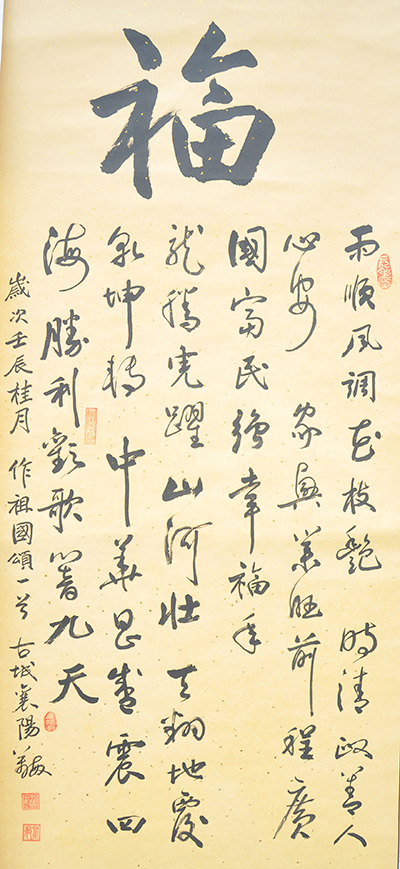 福
雨順風調花枝艷 時清政善人
心安 家興業旺前程廣
國富民強幸福年
龍騰虎躍山河壯 天翻地覆
乾坤轉 中華昌盛震四
海 勝利歡歌響九天
歲次壬辰桂月 作祖國頌一首 古城襄陽